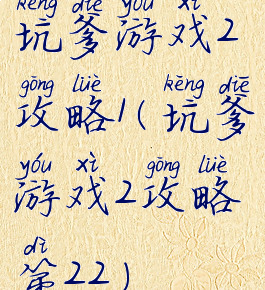 kēng diē yóu xì
坑爹游戏2
gōng lüè kēng diē
攻略1(坑爹
yóu xì gōng lüè
游戏2攻略
dì
第22)